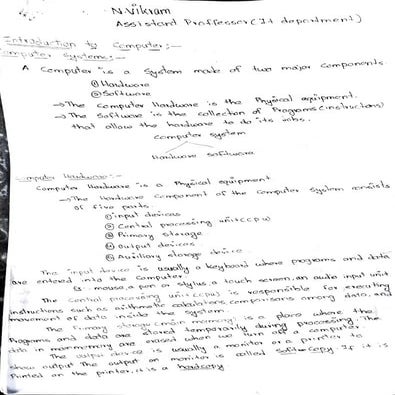 N.Vikram
Assistard Proffessor(It department)
Introduction to Computer:-
Computer System:-
A Computer is a System made of two major components.
① Hardware
② Software
→ The Computer Hardware is the Physical equipment.
→ The Software is the collection of Programs (instructions)
that allow the hardware to do its jobs.
Computer System
Hardware Software
Computer Hardware:-
Computer Hardware is a Physical equipment
→ The Hardware Component of the Computer System consists
of five parts.
① input devices
② Central processing unit(CPU)
③ Primary storage
④ output devices
⑤ Auxiliary storage device
The input device is usually a keyboard where programs and data
are entered into the Computer.
a mouse, a pen or stylus, a touch screen, an audio input unit
The Central processing unit (CPU) is responsible for executing
instructions such as arithmetic calculations, comparisons among data, and
movement of data inside the system.
The Primary storage (main memory) is a place where the
Programs and data are stored temporarily during processing. The
data in are erased when we turn off a computer.
The output device is usually a monitor or a printer to
show output The output on monitor is called softcopy If it is
Printed on the printer, it is a hardcopy